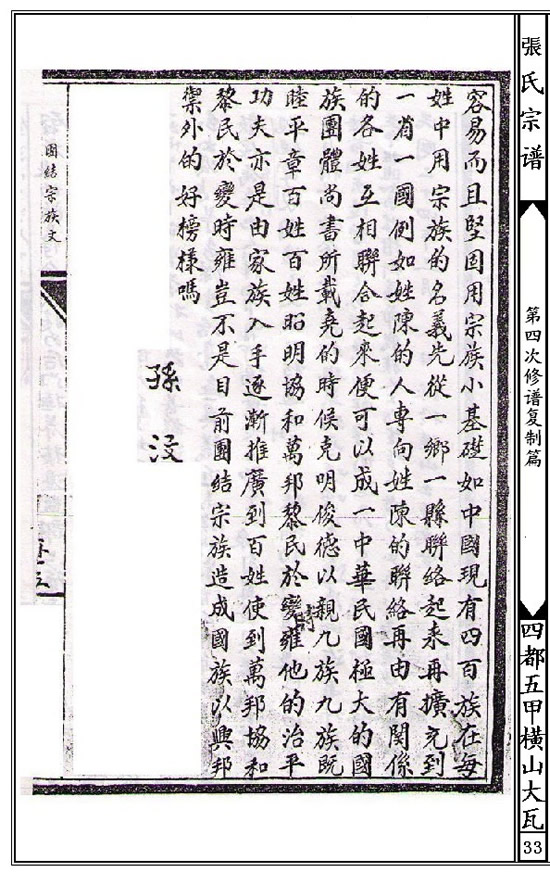 張氏宗谱
第四次修谱复制篇
四都五甲横山大瓦
33
容易而且堅固用宗族小基礎如中國現有四百族在每
姓中用宗族的名義先從一鄉一縣聯絡起来再擴充到
一省一國例如姓陳的人專向姓陳的聯絡再由有関係
的各姓互相聯合起來便可以成一中華民國極大的國
族團體尚書所載堯的時候克明俊德以親九族九族既
睦平章百姓百姓昭明協和萬邦黎民於變時雍他的治平
功夫亦是由家族入手逐漸推廣到百姓使到萬邦協和
黎民於變時雍豈不是目前團結宗族造成國族以興邦
禦外的好榜樣嗎
孫
團結宗族文